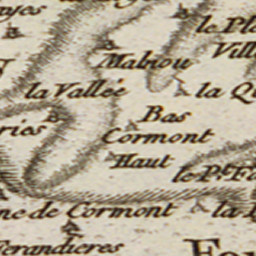 le Pl
Mabiou
Vill
la Vallée
la Qu
Bas
Cormont
Haut
ries
le P.t Fo
ne de Cormont
la
ferandieres